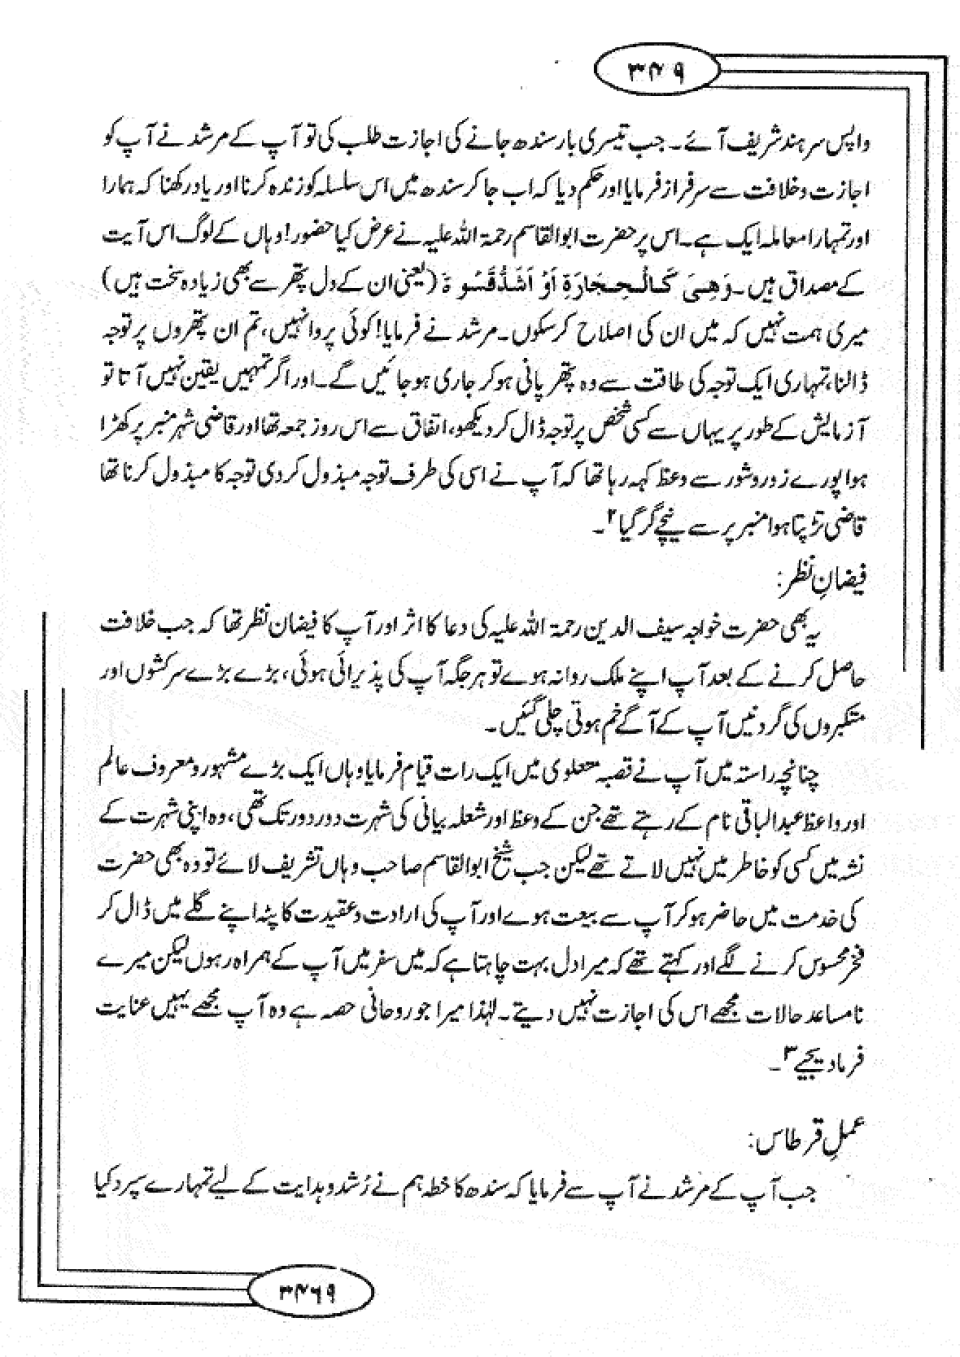 ۳۴۹
واپس سرہند شریف آئے۔ جب تیسری بار سندھ جانے کی اجازت طلب کی تو آپ کے مرشد نے آپ کو
اجازت و خلافت سے سرفراز فرمایا اور حکم دیا کہ اب جا کر سندھ میں اس سلسلہ کو زندہ کرنا اور یاد رکھنا کہ ہمارا
اور تمہارا معاملہ ایک ہے۔ اس پر حضرت ابوالقاسم رحمۃ اللہ علیہ نے عرض کیا حضور! وہاں کے لوگ اس آیت
کے مصداق ہیں۔ وَهِیَ کَالْحِجَارَةِ اَوْ اَشَدُّ قَسْوَة (یعنی ان کے دل پتھر سے بھی زیادہ سخت ہیں)
میری ہمت نہیں کہ میں ان کی اصلاح کر سکوں۔ مرشد نے فرمایا! کوئی پروا نہیں، تم ان پتھروں پر توجہ
ڈالنا، تمہاری ایک توجہ کی طاقت سے وہ پتھر پانی ہو کر جاری ہو جائیں گے۔ اور اگر تمہیں یقین نہیں آتا تو
آزمایش کے طور پر یہاں سے کسی شخص پر توجہ ڈال کر دیکھو، اتفاق سے اس روز جمعہ تھا اور قاضی شہر منبر پر کھڑا
ہوا پورے زور و شور سے وعظ کہہ رہا تھا کہ آپ نے اسی کی طرف توجہ مبذول کر دی توجہ کا مبذول کرنا تھا
قاضی تڑپتا ہوا منبر پر سے نیچے گر گیا ۲۔
فیضانِ نظر:
یہ بھی حضرت خواجہ سیف الدین رحمۃ اللہ علیہ کی دعا کا اثر اور آپ کا فیضان نظر تھا کہ جب خلافت
حاصل کرنے کے بعد آپ اپنے ملک روانہ ہوے تو ہر جگہ آپ کی پذیرائی ہوئی، بڑے بڑے سرکشوں اور
متکبروں کی گردنیں آپ کے آگے خم ہوتی چلی گئیں۔
چنانچہ راستہ میں آپ نے قصبہ میں ایک رات قیام فرمایا وہاں ایک بڑے مشہور و معروف عالم
اور واعظ عبدالباقی نام کے رہتے تھے جن کے وعظ اور شعلہ بیانی کی شہرت دور دور تک تھی، وہ اپنی شہرت کے
نشہ میں کسی کو خاطر میں نہیں لاتے تھے لیکن جب شیخ ابوالقاسم صاحب وہاں تشریف لائے تو وہ بھی حضرت
کی خدمت میں حاضر ہو کر آپ سے بیعت ہوے اور آپ کی ارادت و عقیدت کا پٹہ اپنے گلے میں ڈال کر
فخر محسوس کرنے لگے اور کہتے تھے کہ میرا دل بہت چاہتا ہے کہ میں سفر میں آپ کے ہمراہ رہوں لیکن میرے
نامساعد حالات مجھے اس کی اجازت نہیں دیتے۔ لہٰذا میرا جو روحانی حصہ ہے وہ آپ مجھے یہیں عنایت
فرما دیجیے ۳۔
عملِ قرطاس:
جب آپ کے مرشد نے آپ سے فرمایا کہ سندھ کا خطہ ہم نے رُشد و ہدایت کے لیے تمہارے سپرد کیا
۳۴۶۹